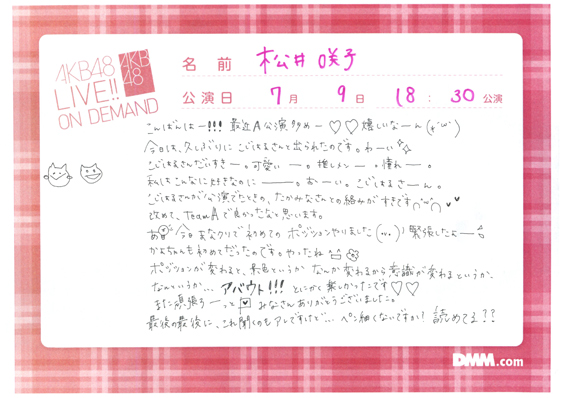 AKB48
LIVE!!
ON DEMAND
AKB
48
名前 松井咲子
公演日 7月 9日 18:30公演
こんばんはー!!! 最近A公演多めー♡♡嬉しいなーん(*´ω`)
今日は、久しぶりにこじはるさんと出られたのです。わーい
こじはるさんだいすきー。可愛いー。推しメンー。憧れー。
私はこんなに好きなのに———。おーい。こじはるさーん。
こじはるさんが公演でたときの、たかみなさんとの絡みがすきです
改めて、teamAで良かったなと思います。
あ 今日まなクリで初めてのポジションやりました(・・`)緊張したよー
かよちゃんも初めてだったのです。やったね
ポジションが変わると、景色というか なんか変わるから意識が変わるというか、
なんというか… アバウト!!! とにかく楽しかったです♡♡
また頑張ろーっと みなさんありがとうございました。
最後の最後に、これ聞くのもアレですけど… ペン細くないですか? 読めてる??
DMM.com